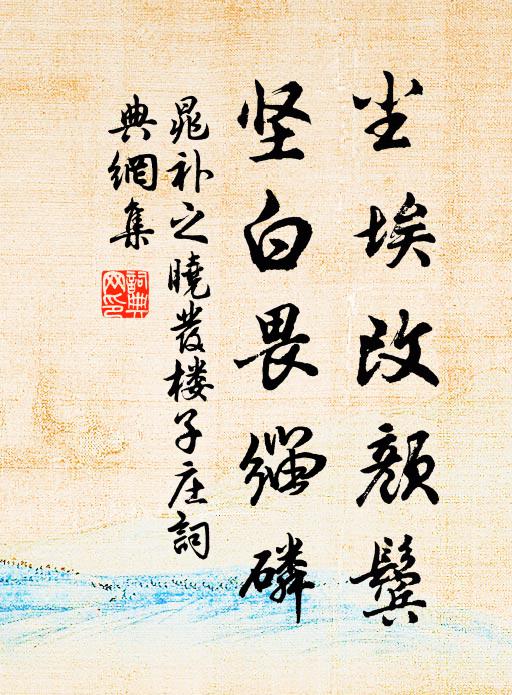 尘埃改颜鬓
坚白畏缁磷
晁补之曉發楼子庄詞
典網集
詞典网印